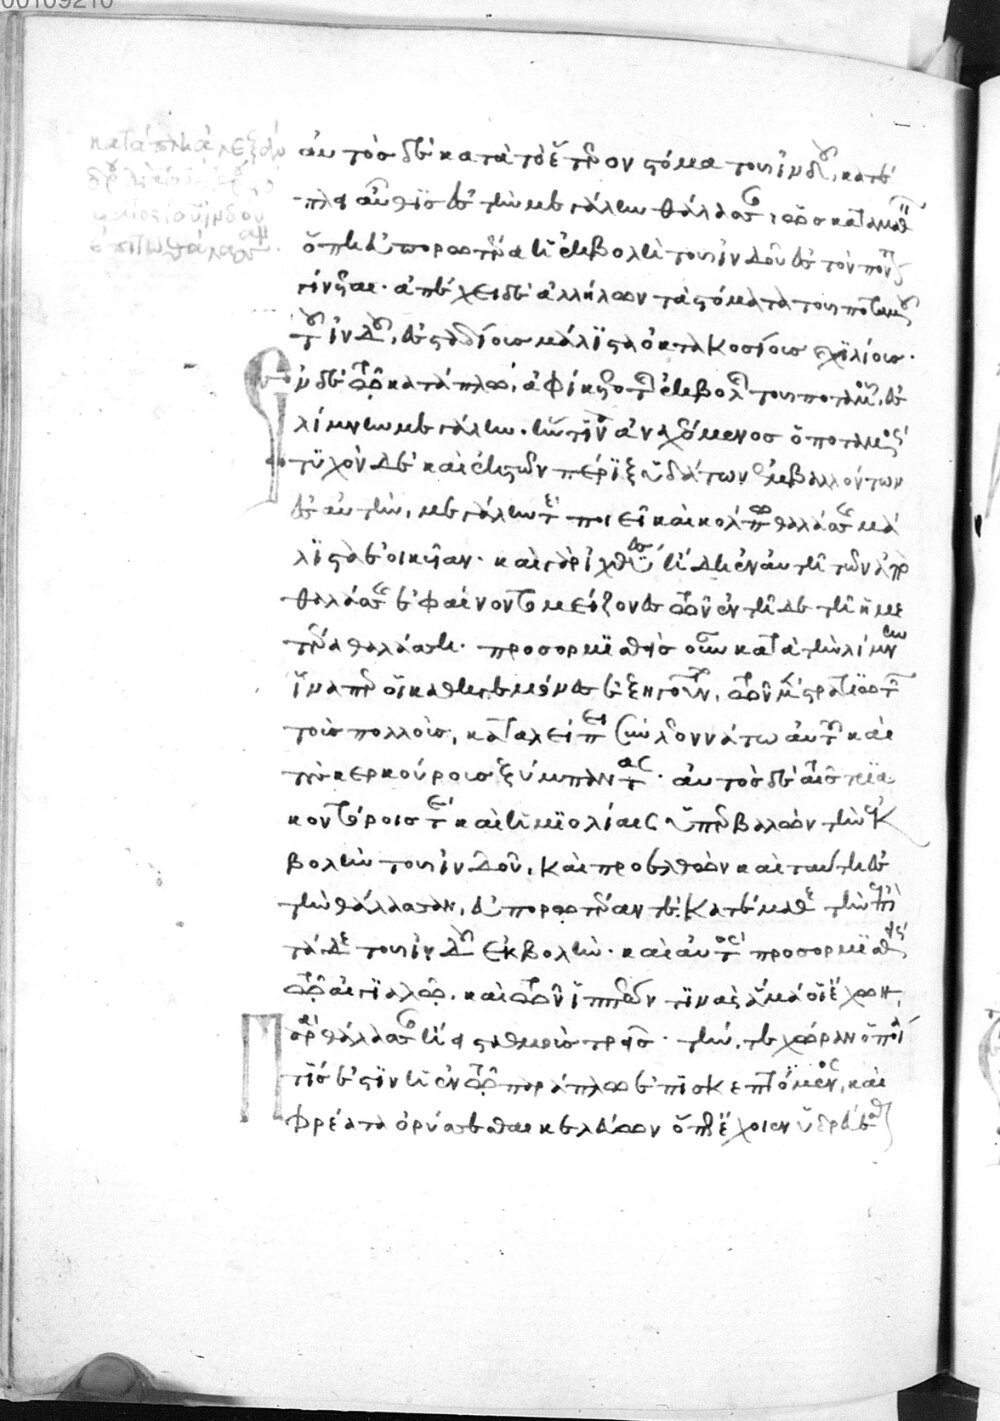 κατάπλ ἀλεξάν
ἐπὶ τὴν θάλασσαν
αὐτὸς δὲ κατὰ τὸ ἕτερον στόμα τοῦ ἰνδοῦ, κατέ
πλει αὖθις ἐς τὴν μεγάλην θάλασσαν, ὡς καταμαθεῖν
ὅπη εὐπορωτέρα ἡ ἐκβολὴ τοῦ ἰνδοῦ ἐς τὸν πόντον
γίνεται· ἀπέχει δὲ ἀλλήλων τὰ στόματα τοῦ ποταμοῦ
τοῦ ἰνδοῦ, ἐς σταδίους μάλιστα ὀκτακοσίους χιλίους.
ἐν δὲ τῷ κατάπλῳ, ἀφίκετο τῆς ἐκβολῆς τοῦ ποταμοῦ, ἐς
λίμνην μεγάλην. ἥντινα ἀναχεόμενος ὁ ποταμός,
τυχὸν δὲ καὶ ἐκ τῶν πέριξ ὑδάτων ἐμβαλλόντων
ἐς αὐτὴν, μεγάλην τε ποιεῖ καὶ κόλπῳ θαλάσσης μά
λιστα ἐοικυῖαν. καὶ γὰρ ἰχθύες ἤδη ἐν αὐτῆ τῶν ἀπὸ
θαλάσσης ἐφαίνοντο μείζονες τῶν ἐν τῆδε τῆ ἡμε
τέρα θαλάσση. προσορμισθεὶς οὖν κατὰ τὴν λίμνην
ἵναπερ οἱ καθηγεμόνες ἐξηγοῦντο, τῶν μὲν στρατιωτῶν
τοὺς πολλοὺς, καταλείπει σὺν λοννάτω αὐτοῦ καὶ
τοὺς κερκούρους ξύμπαντας. αὐτὸς δὲ ταῖς τρια
κοντόροις τε καὶ ἡμιολίαις ὑπερβαλὼν τὴν ἐκ
βολὴν τοῦ ἰνδοῦ, καὶ προελθὼν καὶ ταύτη ἐς
τὴν θάλασσαν, εὐπορωτέραν τε κατέμαθε τὴν ἐπὶ
τάδε τοῦ ἰνδοῦ ἐκβολὴν. καὶ αὐτὸς προσορμισθεὶς
τῷ αἰγιαλῷ, καὶ τῶν ἱππέων τινὰς ἅμα οἷ ἔχων,
παρὰ θάλασσαν ἤει σταθμοὺς τρεῖς. τήν τε χώραν ὁποία
τίς ἐστιν ἡ ἐν τῷ παράπλω ἐπισκεπτόμενος, καὶ
φρέατα ὀρύσσεσθαι κελεύων ὅποθεν ἔχοιεν ὑδρεύεσθαι